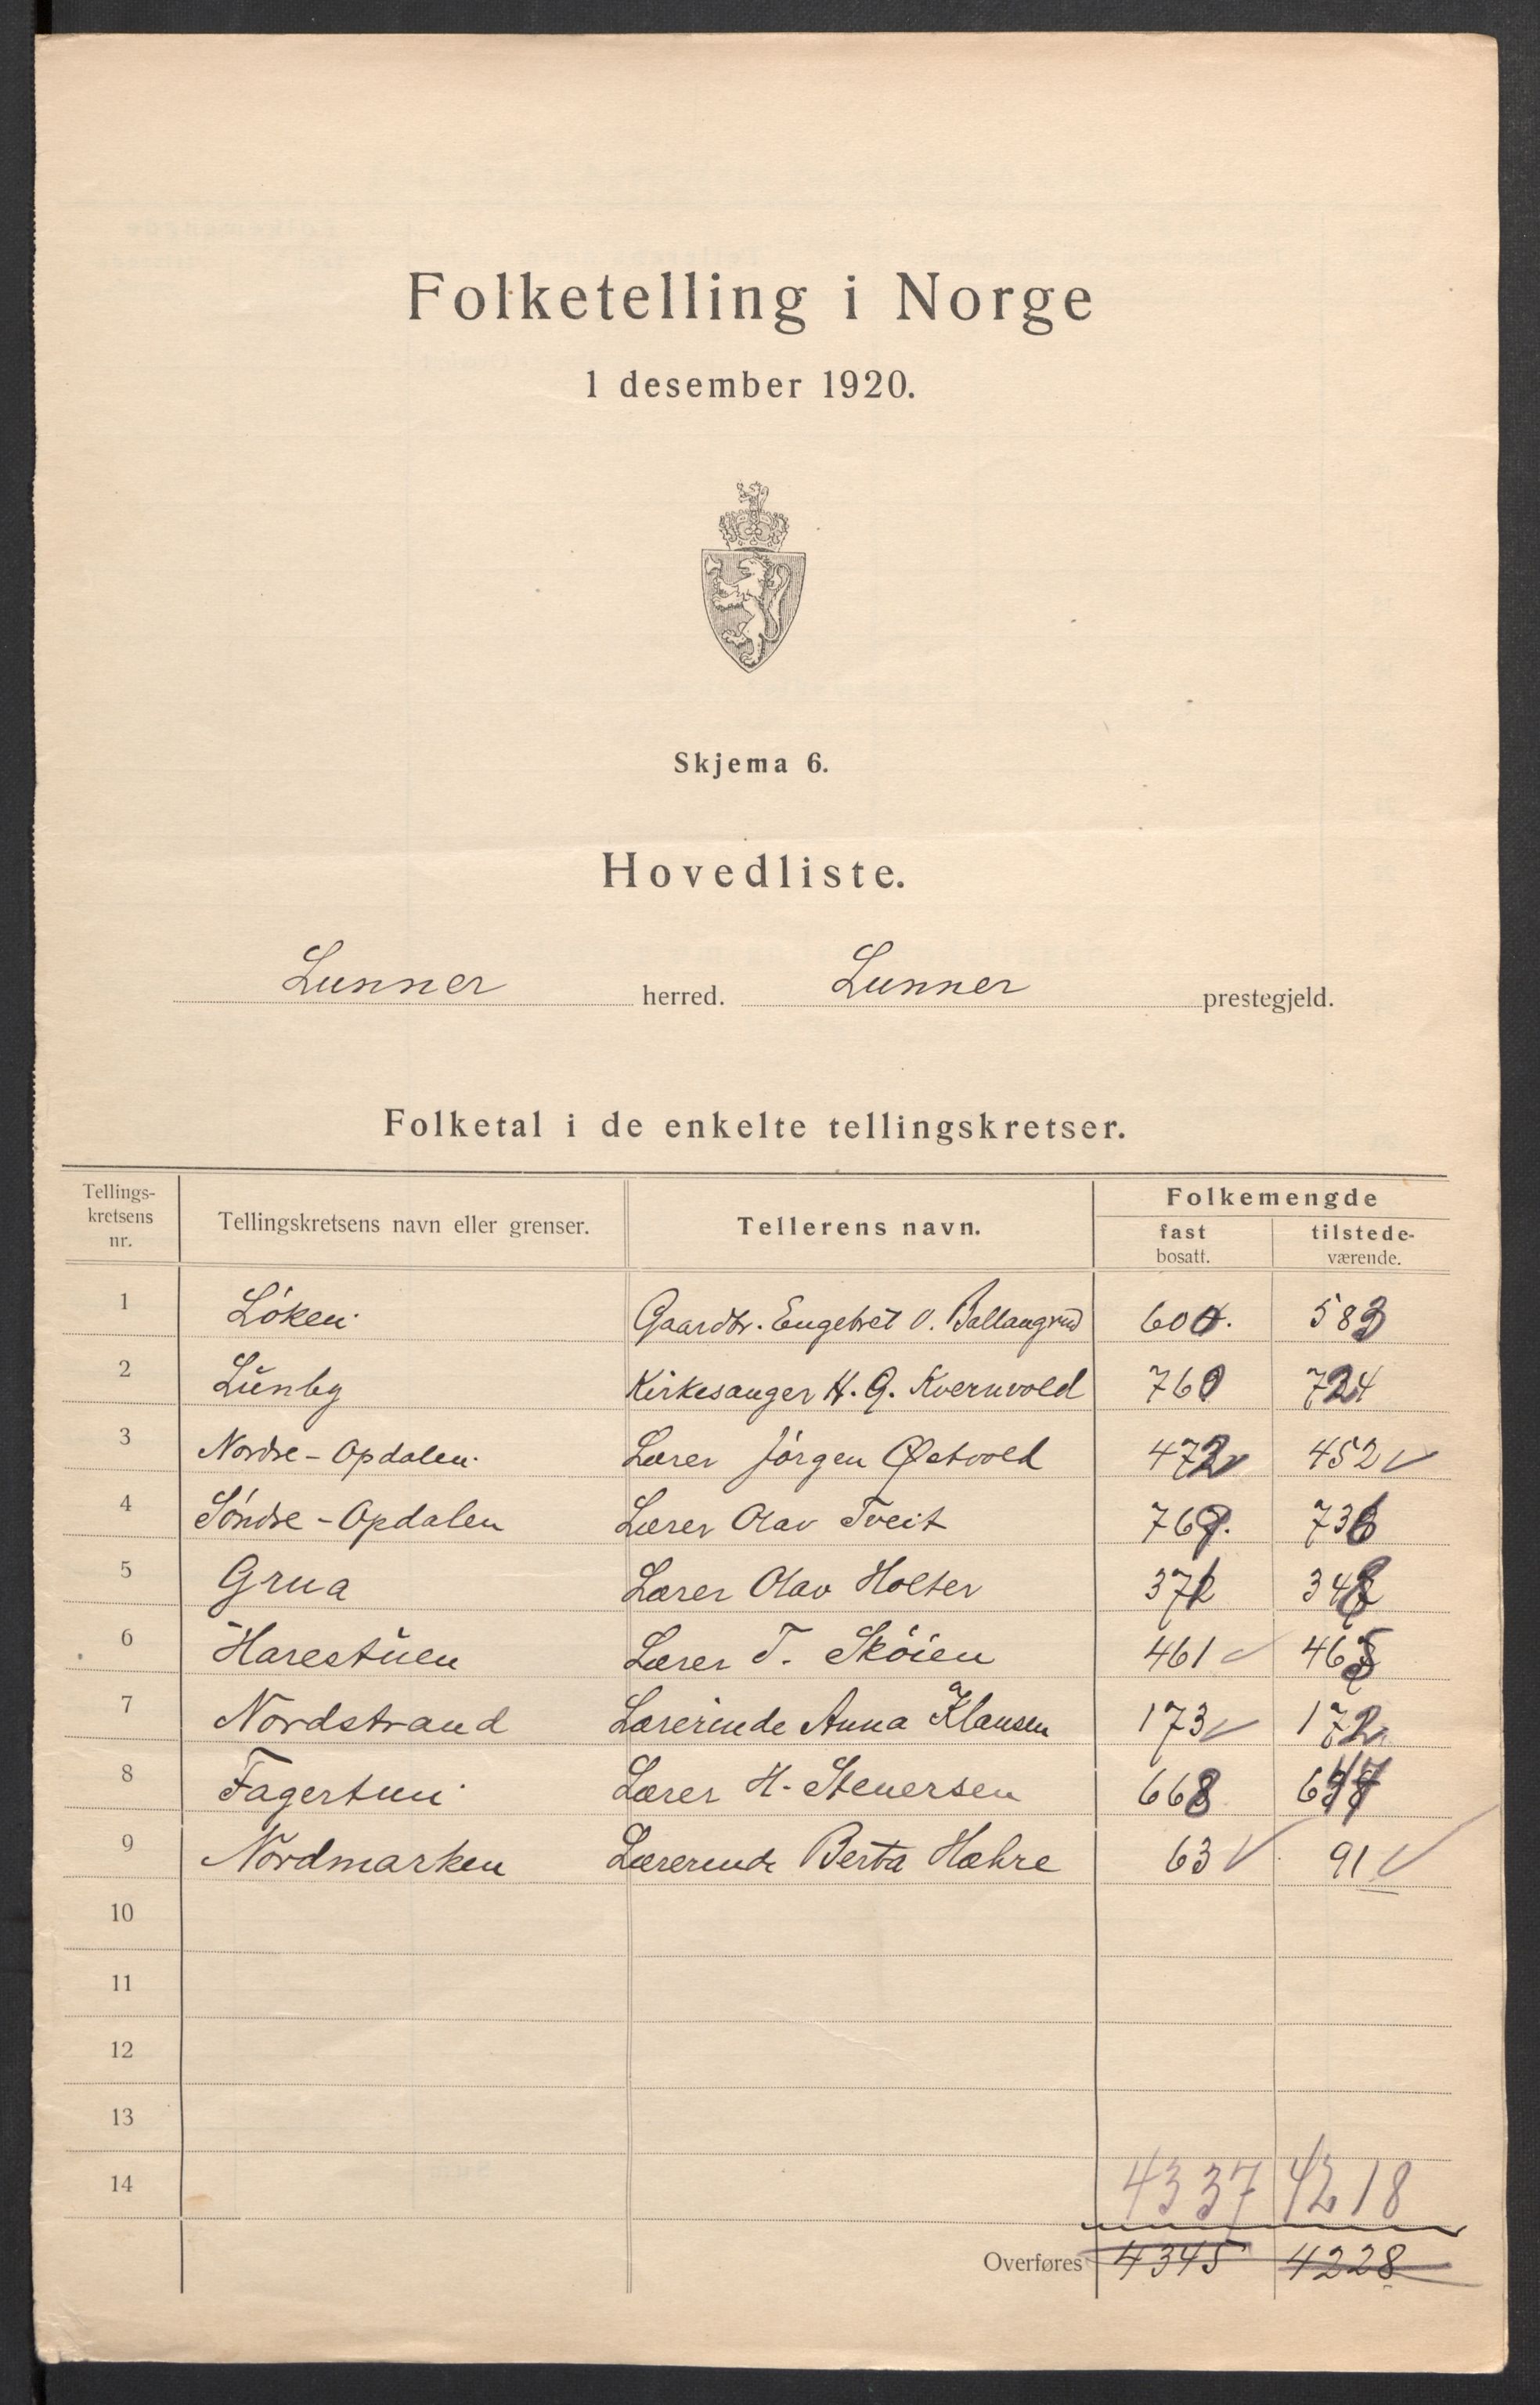 Folketelling i Norge
1 desember 1920.
Skjema 6.
Hovedliste.
Lunner herred. Lunner prestegjeld.
Folketal i de enkelte tellingskretser.
Tellings-kretsens nr. Tellingskretsens navn eller grenser. Tellerens navn. Folkemengde
fast bosatt. tilstede-værende.
1 Løken Gaardbr. Engebret O. Ballangrud 600. 583
2 Lunby Kirkesanger H. G. Kvernvold 760 724
3 Nordre - Opdalen. Lærer Jörgen Østvold 472 452
4 Söndre - Opdalen Lærer Olav Tveit 769. 736
5 Grua Lærer Olav Holter 371 348
6 Harestuen Lærer T. Sköien 461 465
7 Nordstrand Lærerinde Anna Klausen 173 172
8 Fagertun Lærer H. Stenersen 668 647
9 Nordmarken Lærerinde Berta Hæhre 63 91
10
11
12
13
14 4337 4218
Overføres 4345 4228